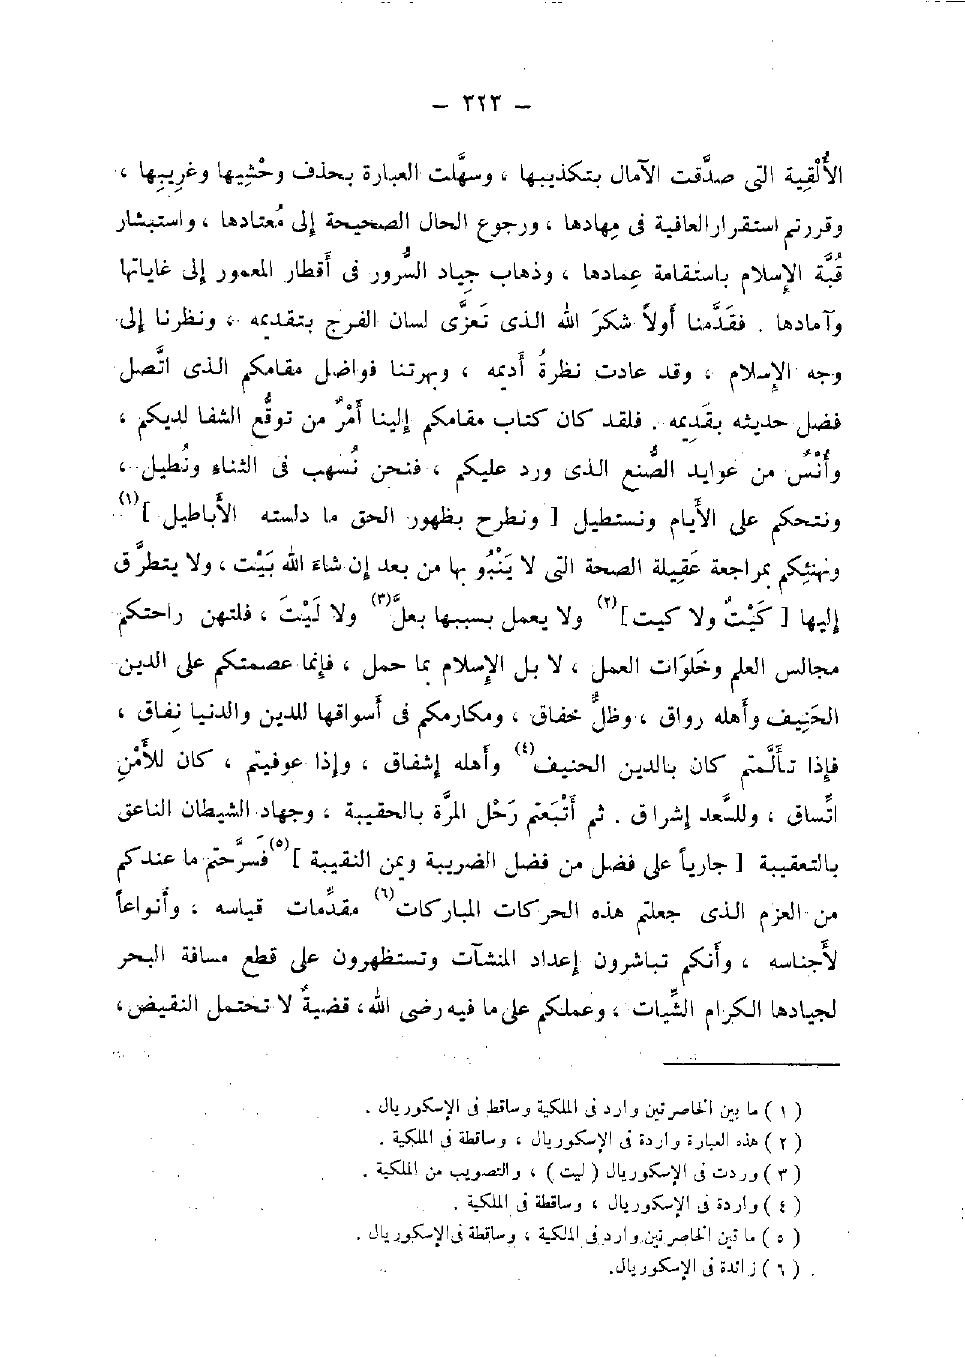 — ٣٢٣ —
الأُلْقِية التى صدَّقت الآمال بتكذيبها ، وسهَّلت العبارة بحذف وحْشِيها وغرِيبِها ،
وقررتم استقرار العافية فى مِهادها ، ورجوع الحال الصحيحة إلى مُعتادها ، واستبشار
قُبَّة الإِسلام باستقامة عِمادها ، وذهاب جِياد السُّرور فى أَقطار المعمور إلى غاياتها
وآمادها . فقَدَّمنا أولاً شكرَ الله الذى تَعزَّى لسان الفرج بتقديمه ، ونظرنا إلى
وجه الإِسلام ، وقد عادت نظرةُ أَديمه ، وبهرتنا فواضل مقامكم الذى اتَّصل
فضل حديثه بقَدِيمه . فلقد كان كتاب مقامكم إلينا أَمْرٌ من توقُّع الشفا لديكم ،
وأُنْسٌ من عوايد الصُّنع الذى ورد عليكم ، فنحن نُسهب فى الثناء ونُطيل ،
ونتحكم على الأَيام ونستطيل [ ونطرح بظهور الحق ما دلسته الأَباطيل ](١)
ونهنئِكم بمراجعة عَقِيلة الصحة التى لا يَنْبُو بها من بعد إن شاء الله بَيْت ، ولا يتطرَّق
إليها [ كَيْتٌ ولا كيت ](٢) ولا يعمل بسببها بعلَّ(٣) ولا لَيْتَ ، فلتهن راحتكم
مجالس العلم وخَلَوَات العمل ، لا بل الإِسلام بما حمل ، فإنما عصمتكم على الدين
الحَنِيف وأَهله رواق ، وظلٌّ خفاق ، ومكارمكم فى أَسواقها للدين والدنيا نِفاق ،
فإذا تأَلَّمتم كان بالدين الحنيف(٤) وأَهله إشفاق ، وإذا عوفيتم ، كان للأَمْنِ
اتِّساق ، وللسَّعد إشراق . ثم أَتْبَعتم رَحْل المرَّة بالحقيبة ، وجهاد الشيطان الناعق
بالتعقيبة [ جارياً على فضل من فضل الضريبة ويمن النقيبة ](٥) فَسرَّحتم ما عندكم
من العزم الذى جعلتم هذه الحركات المباركات(٦) مقدَّمات قياسه ، وأَنواعاً
لأَجناسه ، وأَنكم تباشرون إعداد المنشآت وتستظهرون على قطع مسافة البحر
لجيادها الكرام الشِّيات ، وعملكم على ما فيه رضى الله ، قضيةٌ لا تحتمل النقيض ،
( ١ ) ما بين الخاصرتين وارد فى الملكية وساقط فى الإسكوريال .
( ٢ ) هذه العبارة واردة فى الإسكوريال ، وساقطة فى الملكية .
( ٣ ) وردت فى الإسكوريال ( ليت ) ، والتصويب من الملكية .
( ٤ ) واردة فى الإسكوريال ، وساقطة فى الملكية .
( ٥ ) ما تين الخاصرتين وارد فى المالكية ، وساقطة فى الإسكوريال .
( ٦ ) زائدة فى الإسكوريال.